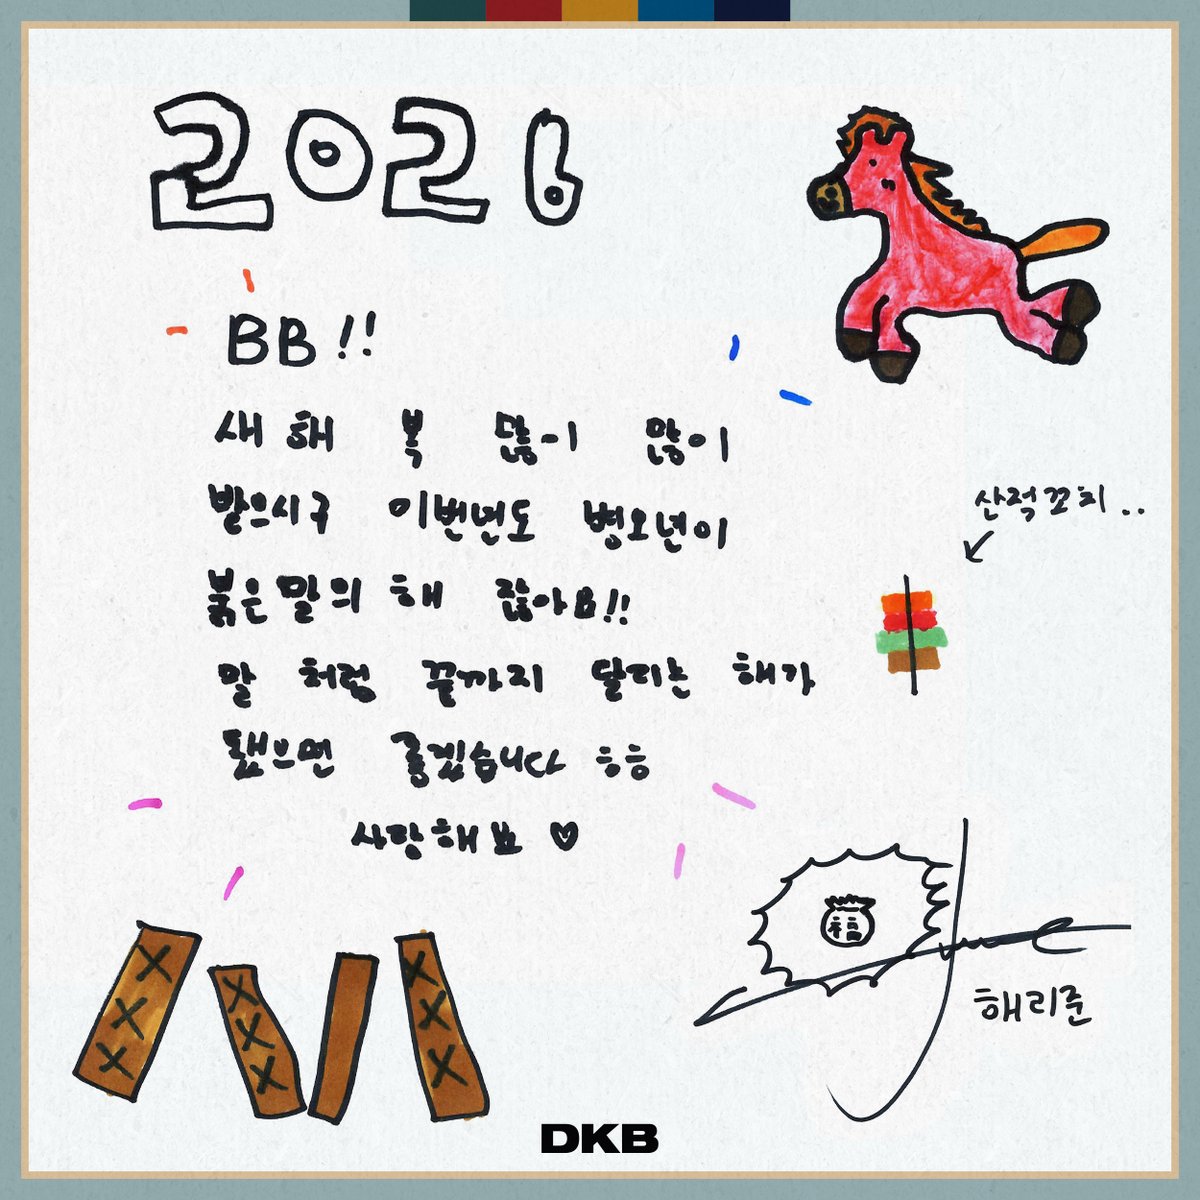 2026
BB!!
새해 복 많이 많이
받으시구 이번년도 병오년이
붉은말의 해 잖아요!!
말 처럼 끝까지 달리는 해가
됐으면 좋겠습니다 ㅎㅎ
사랑해요 ♡
산적꼬치..
福
해리준
DKB